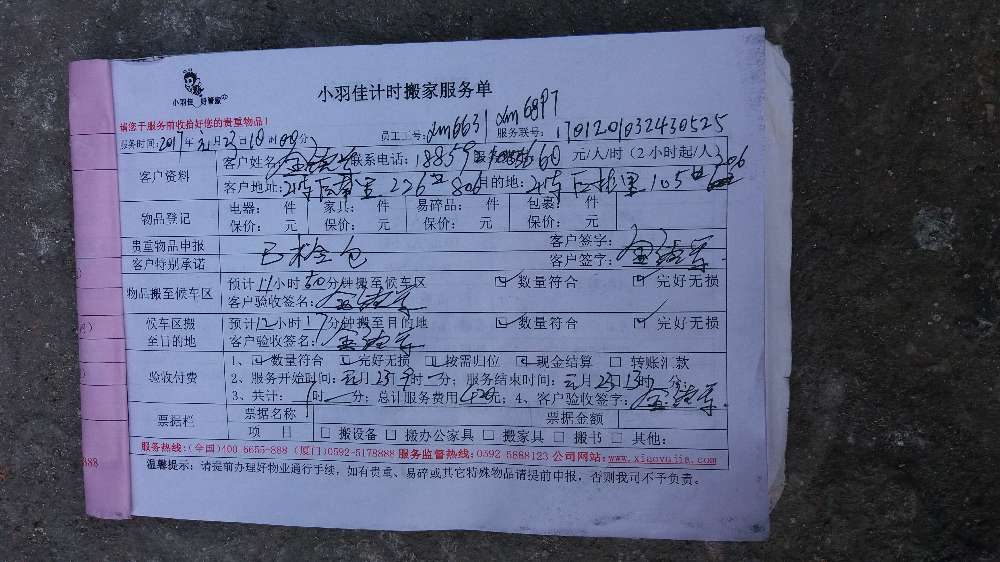 小羽佳 好管家
小羽佳计时搬家服务单
请您于服务前收拾好您的贵重物品!
服务时间: 2017年 元月23日10时00分 员工工号: xm6631 xm6897 服务联号: 170120103243052​5
客户资料
客户姓名: 联系电话: 18859 60 元/人/时(2小时起/人)
客户地址: 226 806 目的地: 105 206
物品登记
电器: 件 家具: 件 易碎品: 件 包裹: 件
保价: 元 保价: 元 保价: 元 保价: 元
贵重物品申报 已检包 客户签字:
客户特别承诺 客户签字:
物品搬至候车区
预计11小时50分钟搬至候车区 数量符合 完好无损
客户验收签名:
候车区搬至目的地
预计12小时17分钟搬至目的地 数量符合 完好无损
客户验收签名:
验收付费
1、 数量符合 完好无损 按需归位 现金结算 转账汇款
2、服务开始时间: 元月23日9时一分; 服务结束时间: 元月23日13时 分;
3、共计: 时一分; 总计服务费用420元; 4、客户验收签字:
票据栏
票据名称 票据金额
项 目 搬设备 搬办公家具 搬家具 搬书 其他:
服务热线:(全国)400 6655-888 (厦门)0592-5178888 服务监督热线:0592 5888123 公司网站:www.xiaoyujia.com
温馨提示: 请提前办理好物业通行手续, 如有贵重、易碎或其它特殊物品请提前申报, 否则我司不予负责。
888